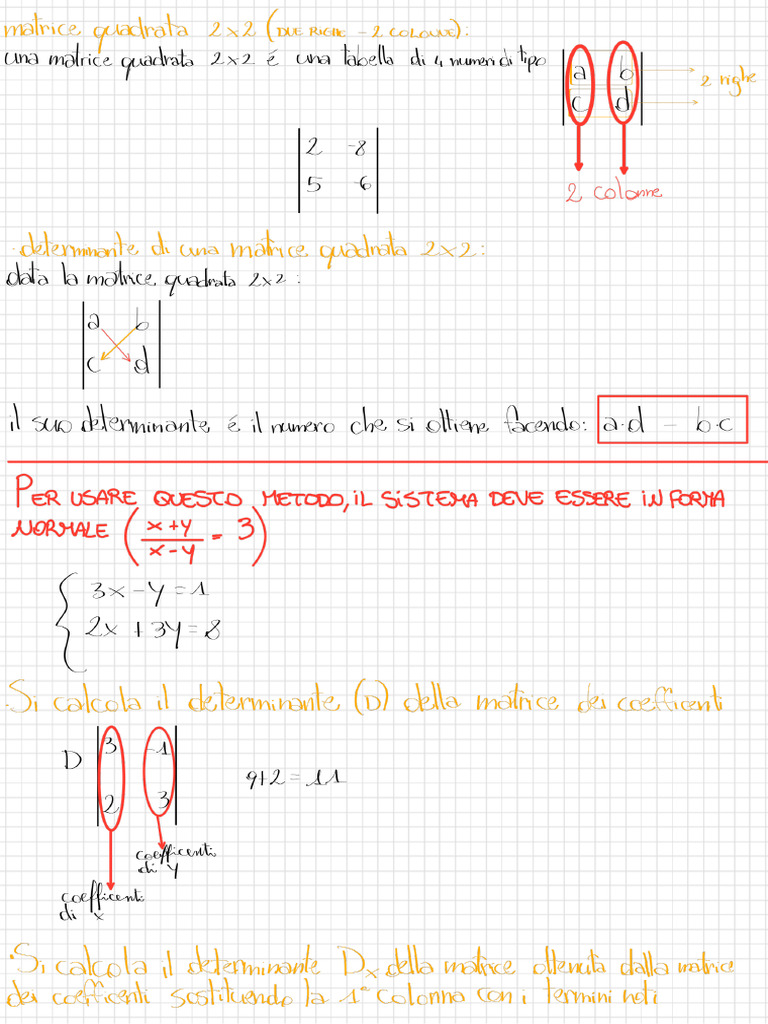 matrice quadrata 2x2 (DUE RIGHE - 2 COLONNE):
una matrice quadrata 2x2 é una tabella di 4 numeri di tipo
a b
c d
2 righe
2 colonne
2 -8
5 -6
· determinante di una matrice quadrata 2x2:
data la matrice quadrata 2x2:
a b
c d
il suo determinante é il numero che si ottiene facendo: a·d - b·c
PER USARE QUESTO METODO, IL SISTEMA DEVE ESSERE IN FORMA
NORMALE (x+y / x-y = 3)
3x-y=1
2x+3y=8
· Si calcola il determinante (D) della matrice dei coefficenti
D
3 -1
2 3
9+2=11
coefficenti
di y
coefficenti
di x
· Si calcola il determinante Dx della matrice ottenuta dalla matrice
dei coefficenti sostituendo la 1ª colonna con i termini noti